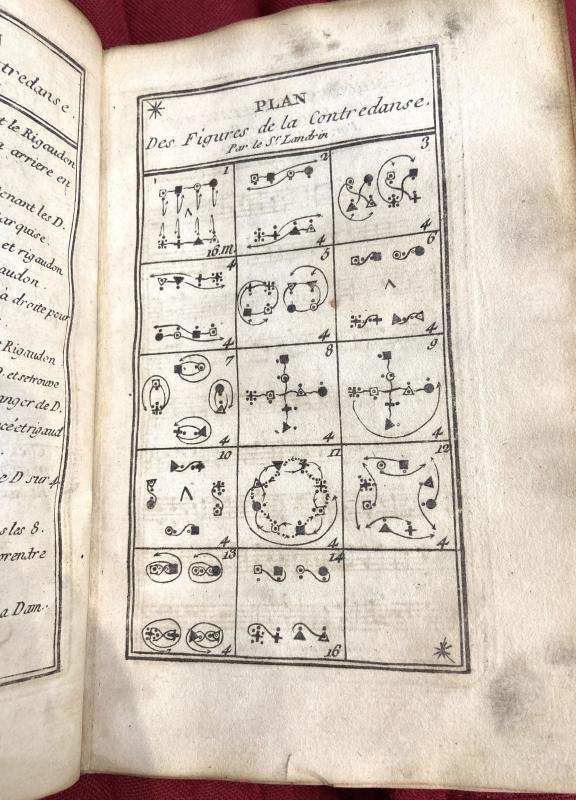 ntredanse.
t le Rigaudon
a arriere en
tenant les D.
arquise.
et rigaudon
audon.
à droite pour
Rigaudon
D. et se trouve
anger de D.
ncé et rigaud
e D sur 4
s les 8.
prendre
a Dam.
PLAN
Des Figures de la Contredanse.
Par le Sr. Landrin
1
16.m.
2
4
3
4
4
4
5
4
6
4
7
4
8
4
9
4
10
4
11
4
12
4
13
4
14
16